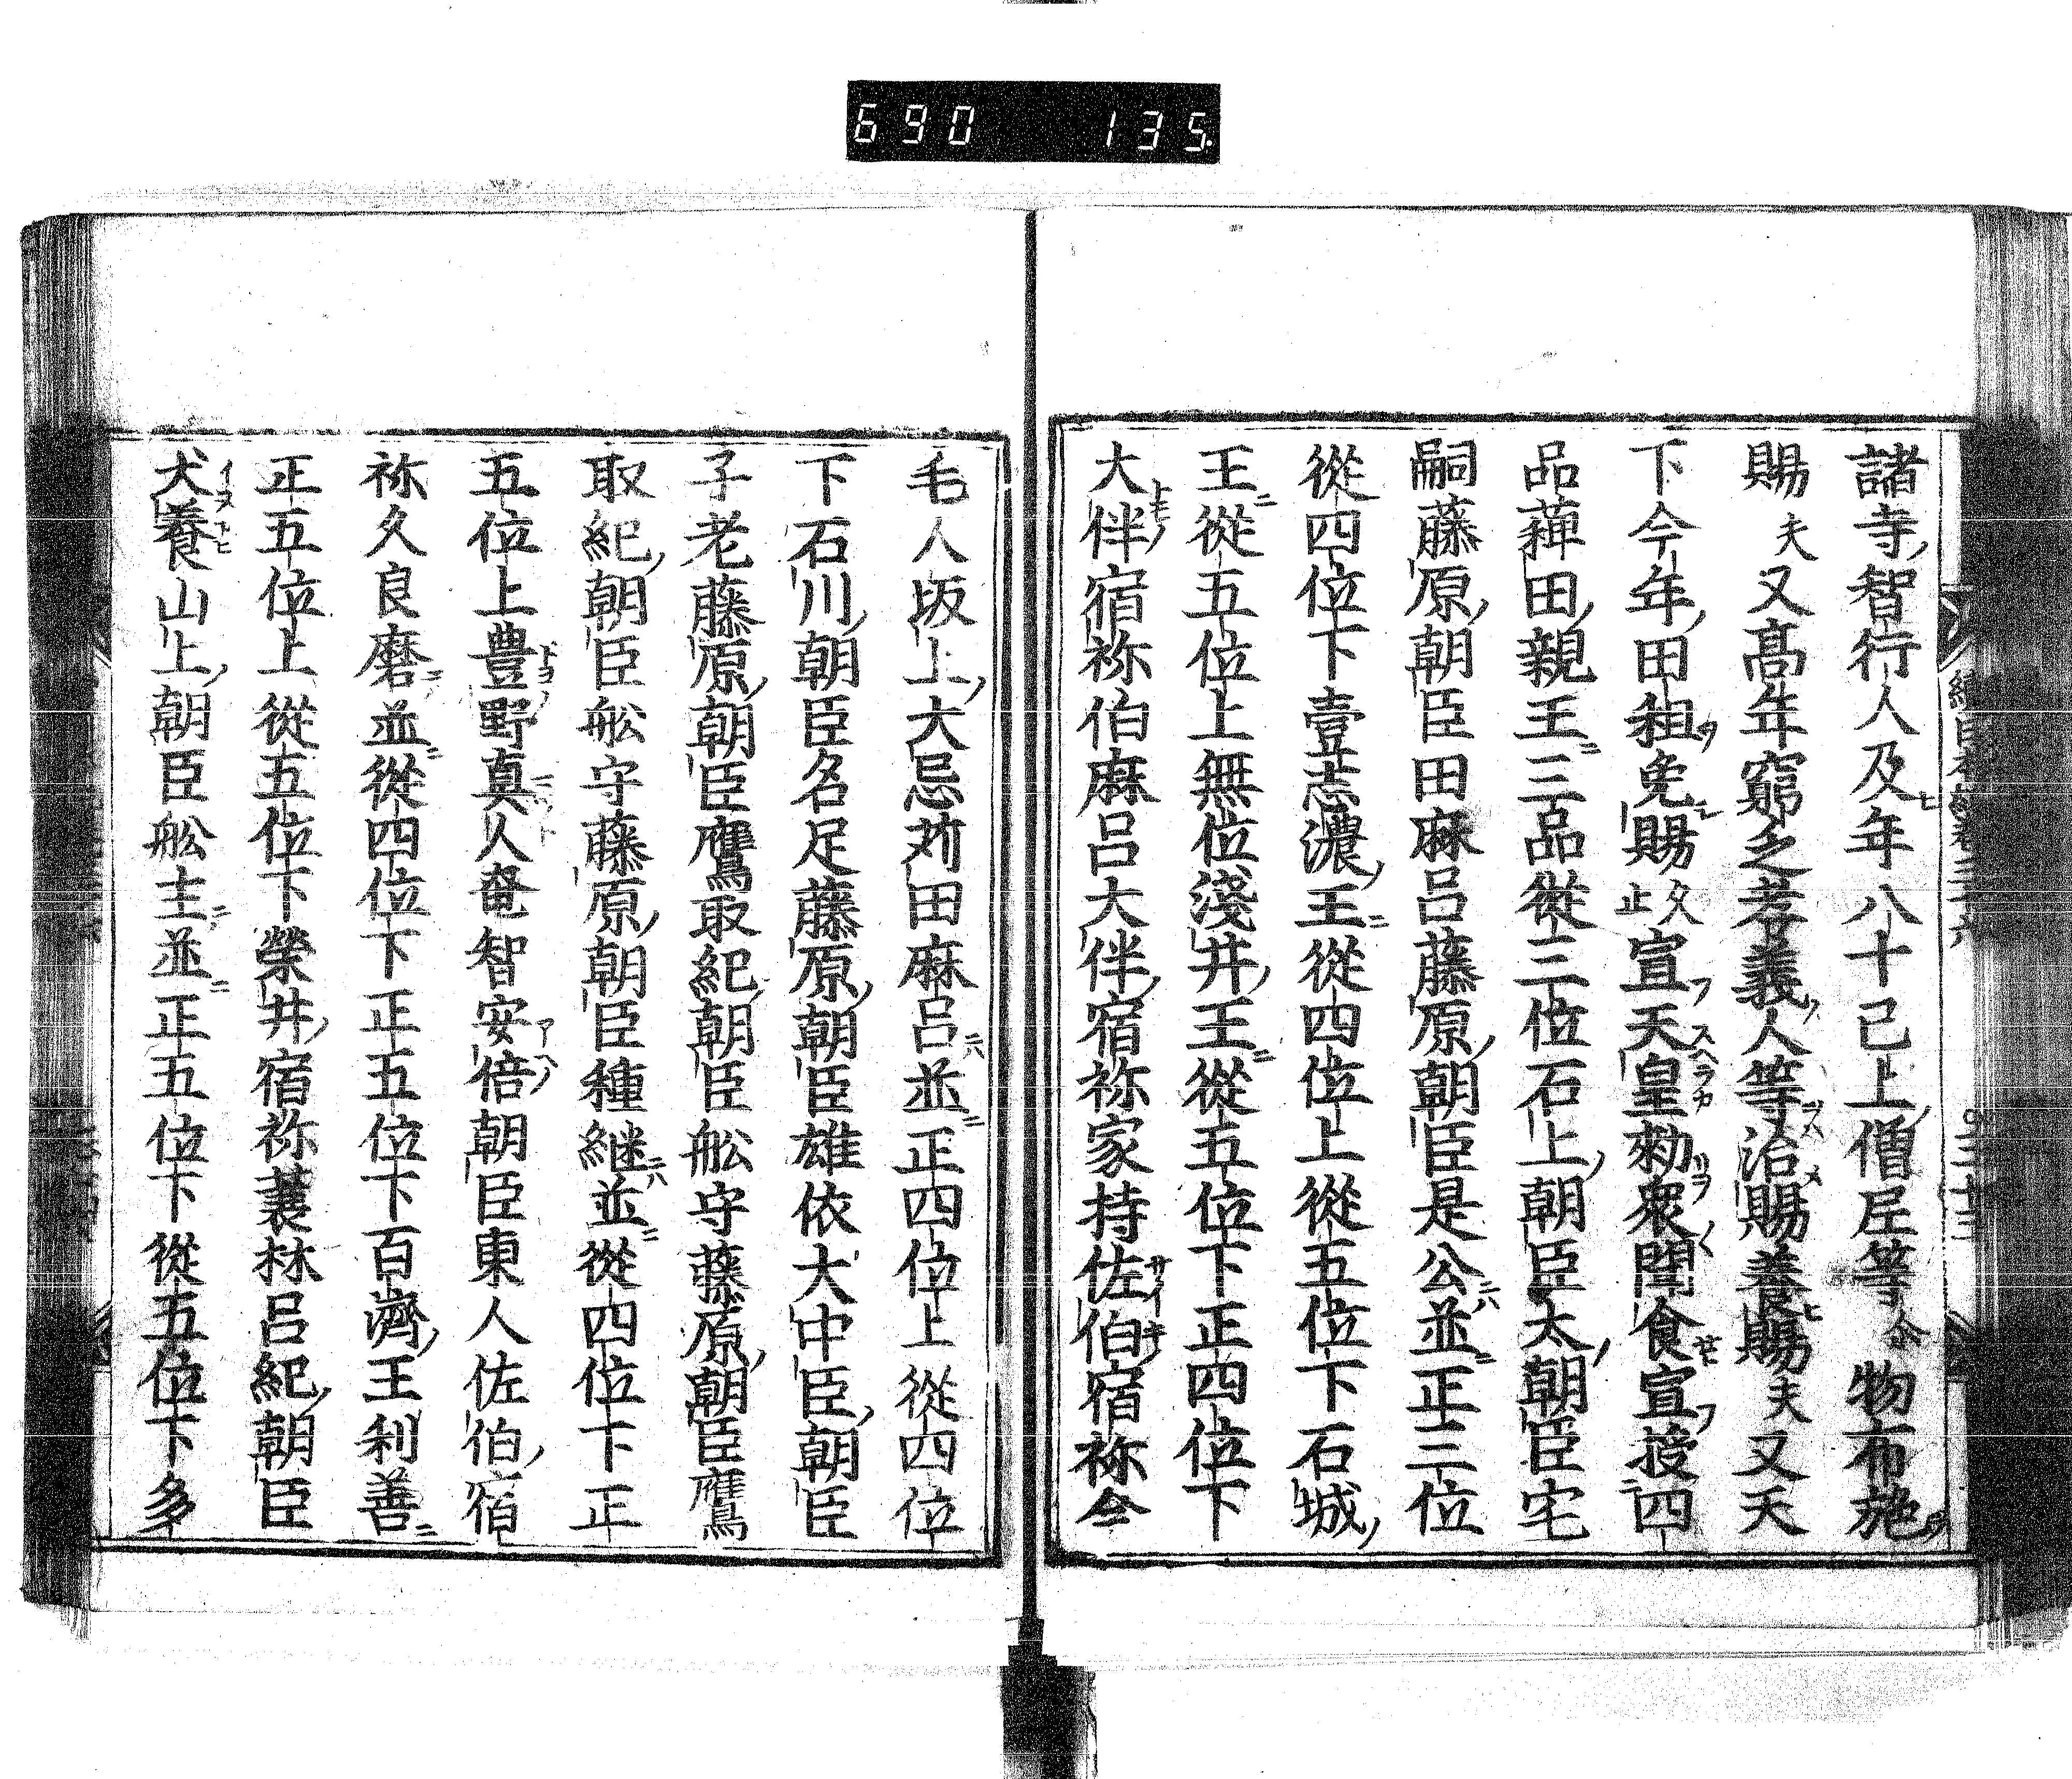 690 135.
諸寺智行人及年八十已上僧尼等尓物布施
賜夫又高年窮乏孝義人等治賜養賜夫又天
下今年田租免賜久止宣天皇勅衆聞食宣授四
品薭田親王三品從三位石上朝臣宅
嗣藤原朝臣田麻呂藤原朝臣是公並正三位
從四位下壹志濃王從四位上從五位下石城
王從五位上無位淺井王從五位下正四位下
大伴宿祢伯麻呂大伴宿祢家持佐伯宿祢今
毛人坂上大忌苅田麻呂並正四位上從四位
下石川朝臣名足藤原朝臣雄依大中臣朝臣
子老藤原朝臣鷹取紀朝臣舩守藤原朝臣鷹
取紀朝臣舩守藤原朝臣種継並從四位下正
五位上豊野真人奄智安倍朝臣東人佐伯宿
祢久良磨並從四位下正五位下百濟王利善
正五位上從五位下榮井宿祢蓑林呂紀朝臣
犬養山上朝臣舩主並正五位下從五位下多